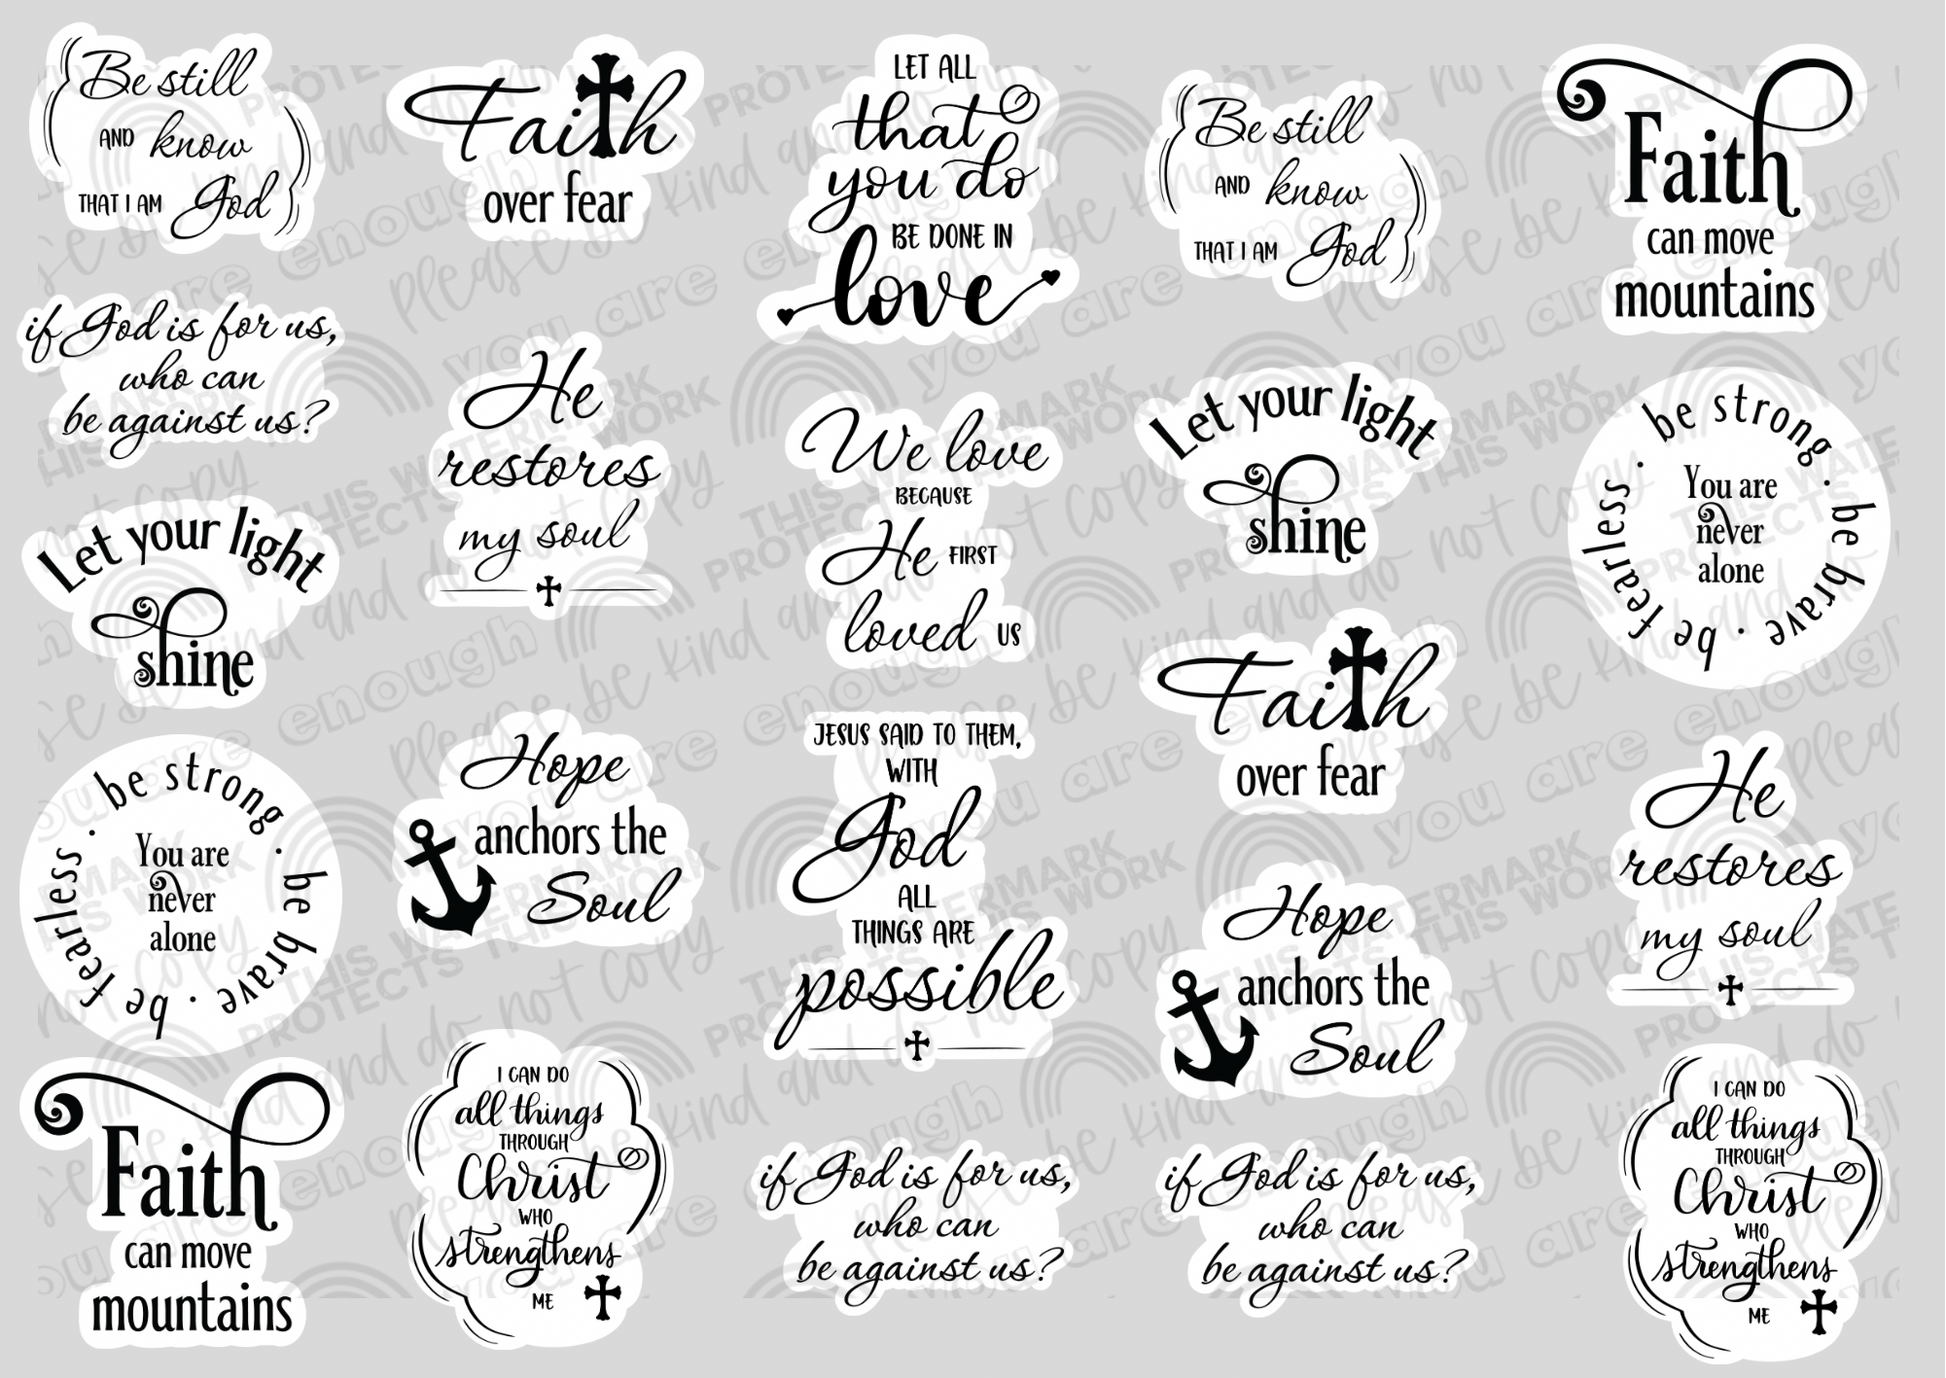 Be still
AND know
THAT I AM God
if God is for us,
who can
be against us?
Let your light
shine
be strong . be brave . be fearless .
You are
never
alone
Faith
can move
mountains
Faith
over fear
He
restores
my soul
Hope
anchors the
Soul
I CAN DO
all things
THROUGH
Christ
WHO
strengthens
ME
LET ALL
that
you do
BE DONE IN
love
We love
BECAUSE
He FIRST
loved US
JESUS SAID TO THEM,
WITH
God
ALL
THINGS ARE
possible
if God is for us,
who can
be against us?
Be still
AND know
THAT I AM God
Let your light
shine
Faith
over fear
Hope
anchors the
Soul
if God is for us,
who can
be against us?
Faith
can move
mountains
be strong . be brave . be fearless .
You are
never
alone
He
restores
my soul
I CAN DO
all things
THROUGH
Christ
WHO
strengthens
ME
you are enough
please be kind and do not copy
THIS WATERMARK
PROTECTS THIS WORK